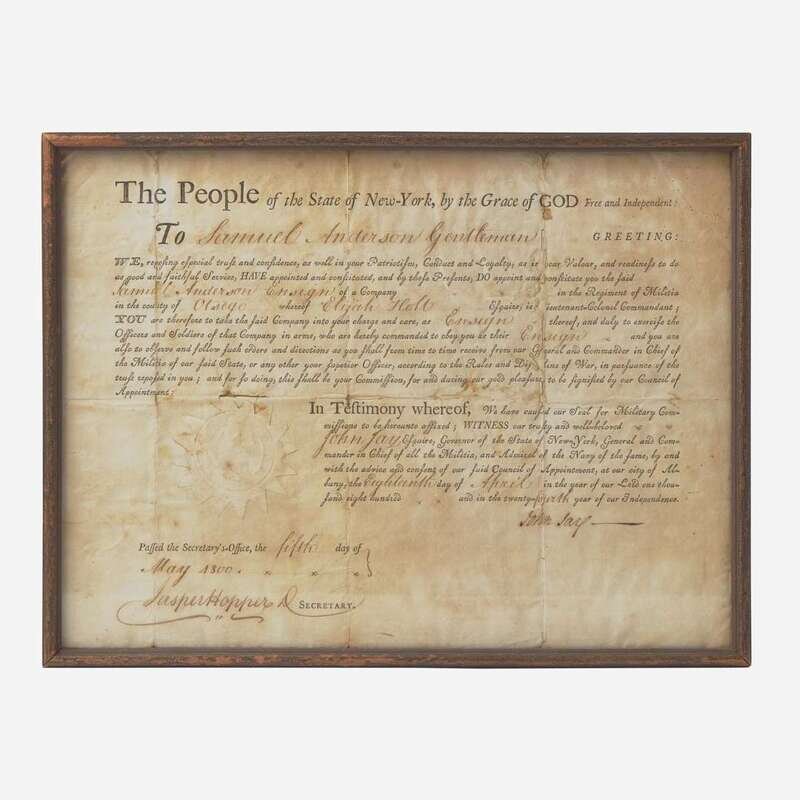 The People of the State of New-York, by the Grace of GOD Free and Independent:
To Samuel Anderson Gentleman GREETING:
WE, reposing eſpecial truſt and confidence, as well in your Patriotiſm, Conduct and Loyalty, as in your Valour, and readineſs to do
us good and faithful Service, HAVE appointed and conſtituted, and by theſe Preſents, DO appoint and conſtitute you the ſaid
Samuel Anderson Ensign of a Company in the Regiment of Militia
in the county of Otsego whereof Elijah Holt Eſquire, is Lieutenant-Colonel Commandant;
YOU are therefore to take the ſaid Company into your charge and care, as Ensign thereof, and duly to exerciſe the
Officers and Soldiers of that Company in arms, who are hereby commanded to obey you as their Ensign and you are
alſo to obſerve and follow ſuch Orders and directions as you ſhall from time to time receive from our General and Commander in Chief of
the Militia of our ſaid State, or any other your ſuperior Officer, according to the Rules and Diſcipline of War, in purſuance of the
truſt repoſed in you; and for ſo doing, this ſhall be your Commiſſion, for and during our good pleaſure, to be ſignified by our Council of
Appointment:
In Teſtimony whereof, We have cauſed our Seal for Military Com-
miſſions to be hereunto affixed; WITNESS our truſty and well-beloved
John Jay Eſquire, Governor of the State of New-York, General and Com-
mander in Chief of all the Militia, and Admiral of the Navy of the ſame, by and
with the advice and conſent of our ſaid Council of Appointment, at our city of Al-
bany, the Eighteenth day of April in the year of our Lord one thou-
ſand eight hundred and in the twenty-fourth year of our Independence.
John Jay
Paſſed the Secretary's-Office, the fifth day of
May 1800.
Jasper Hopper D SECRETARY.